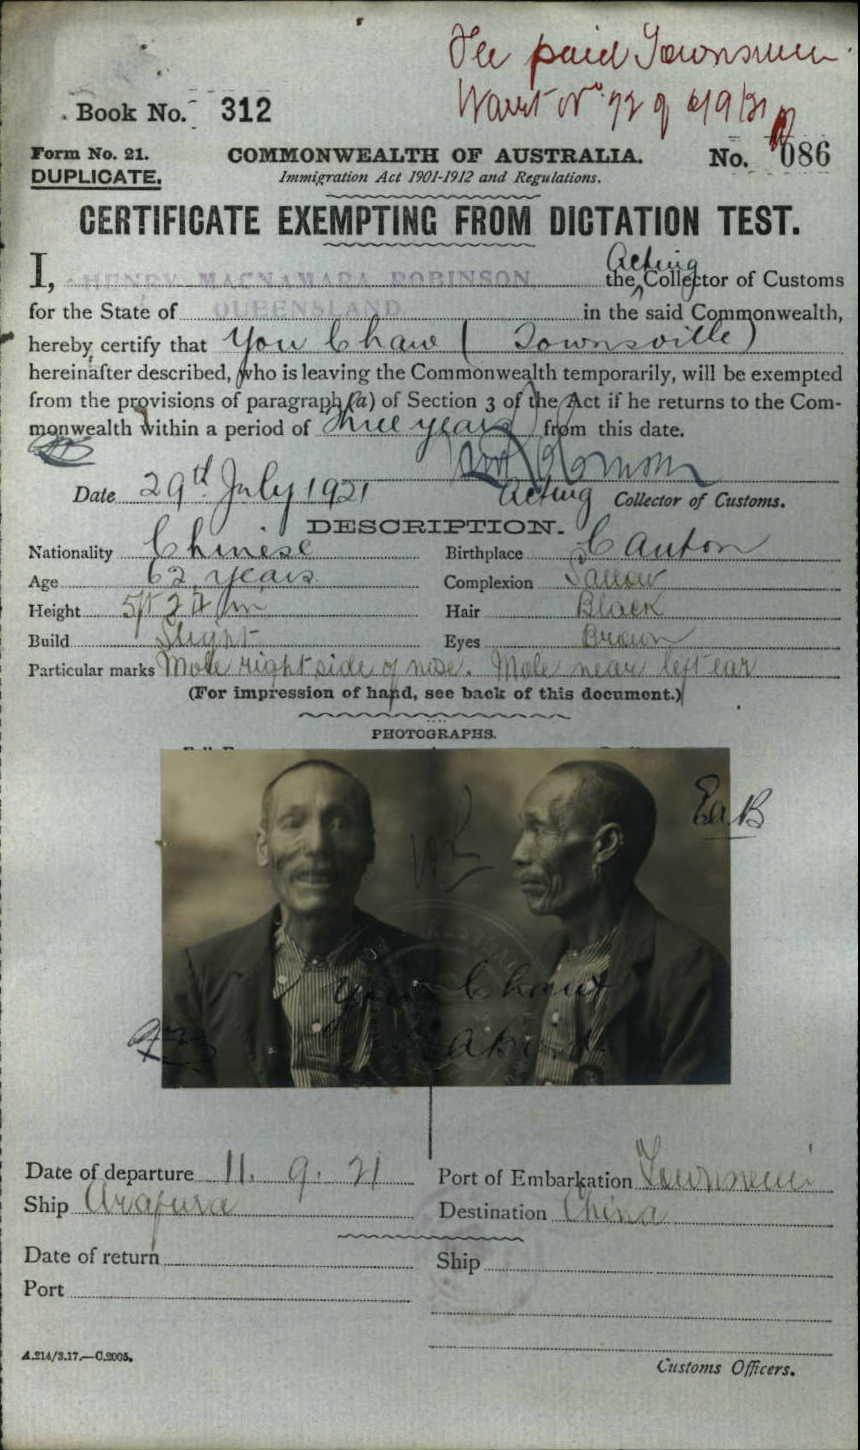 Fee paid Townsville
Book No. 312
Form No. 21.
COMMONWEALTH OF AUSTRALIA.
No. 086
DUPLICATE.
Immigration Act 1901-1912 and Regulations.
CERTIFICATE EXEMPTING FROM DICTATION TEST.
Acting
I, HENRY MACNAMARA ROBINSON the Collector of Customs
for the State of QUEENSLAND in the said Commonwealth,
hereby certify that You Chaw (Townsville)
hereinafter described, who is leaving the Commonwealth temporarily, will be exempted
from the provisions of paragraph (a) of Section 3 of the Act if he returns to the Com-
monwealth within a period of three years from this date.
Date 29th July 1921 Acting Collector of Customs.
DESCRIPTION.
Nationality Chinese Birthplace Canton
Age 62 years Complexion Sallow
Height 5ft Hair Black
Build Slight Eyes Brown
Particular marks Mole right side of nose. Mole near left ear
(For impression of hand, see back of this document.)
PHOTOGRAPHS.
Date of departure 11. 9. 21 Port of Embarkation Townsville
Ship Arafura Destination China
Date of return Ship
Port
A.214/3.17.—C.2005.
Customs Officers.